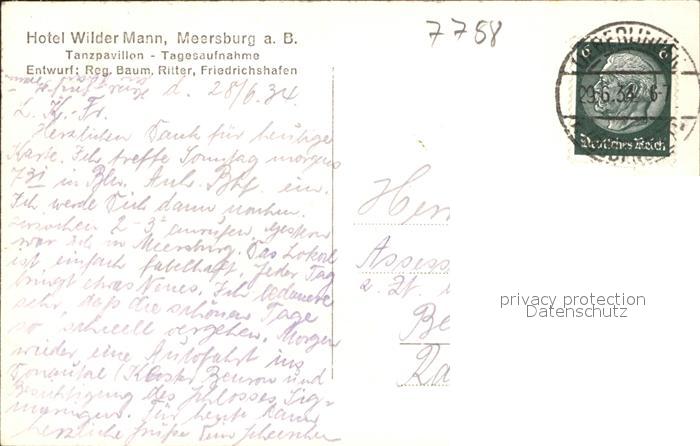 Hotel Wilder Mann, Meersburg a. B.
Tanzpavillon - Tagesaufnahme
Entwurf: Reg. Baum. Ritter, Friedrichshafen
7758
d. 28/6.34
L. K. Fr.
Herzlichen Dank für heutige
Karte. Ich treffe Sonntag morgens
7 31 in Bln. Anh. Bhf. ein.
Ich werde Dich dann nachm.
zwischen 2-3h anrufen. Gestern
war ich in Meersburg. Das Lokal
ist einfach fabelhaft. Jeder Tag
bringt etwas Neues. Ich bedauere
sehr, daß die schönen Tage
so schnell vergehen. Morgen
wieder eine Autofahrt ins
Donautal (Kloster Beuron und
Besichtigung des Schlosses Sig-
maringen. Für heute dann
herzliche Grüße Dein
Herr
Assess
z. Zt.
Be
29.6.34
6
Deutsches Reich
privacy protection
Datenschutz